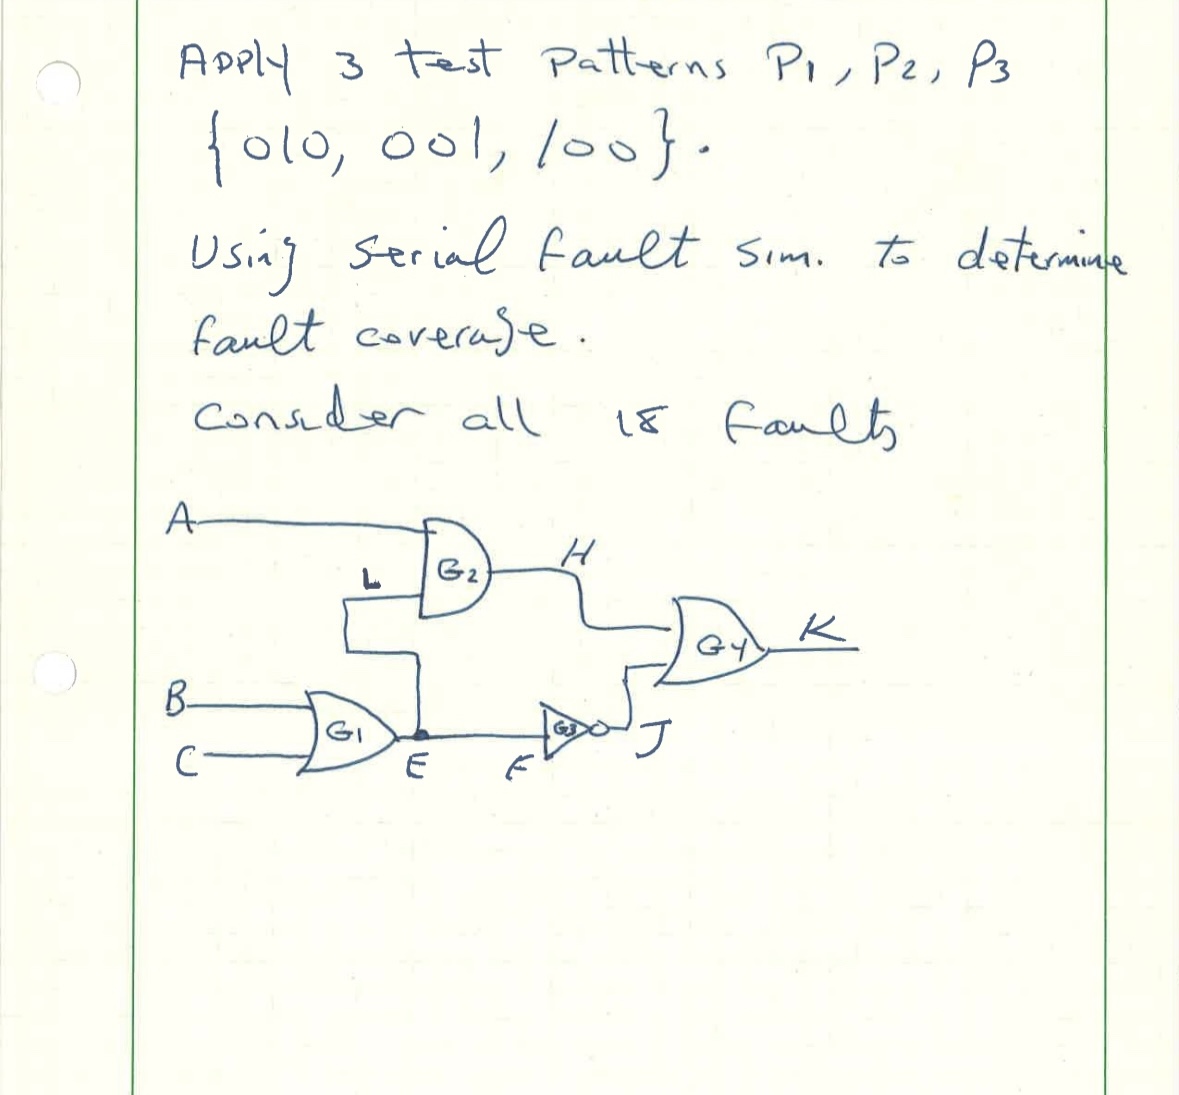 Apply 3 test patterns P1, P2, P3
{010, 001, 100}.
Using serial fault sim. to determine
fault coverage.
Consider all 18 faults
A
L
G2
H
G4
K
B
C
G1
E
F
G3
J